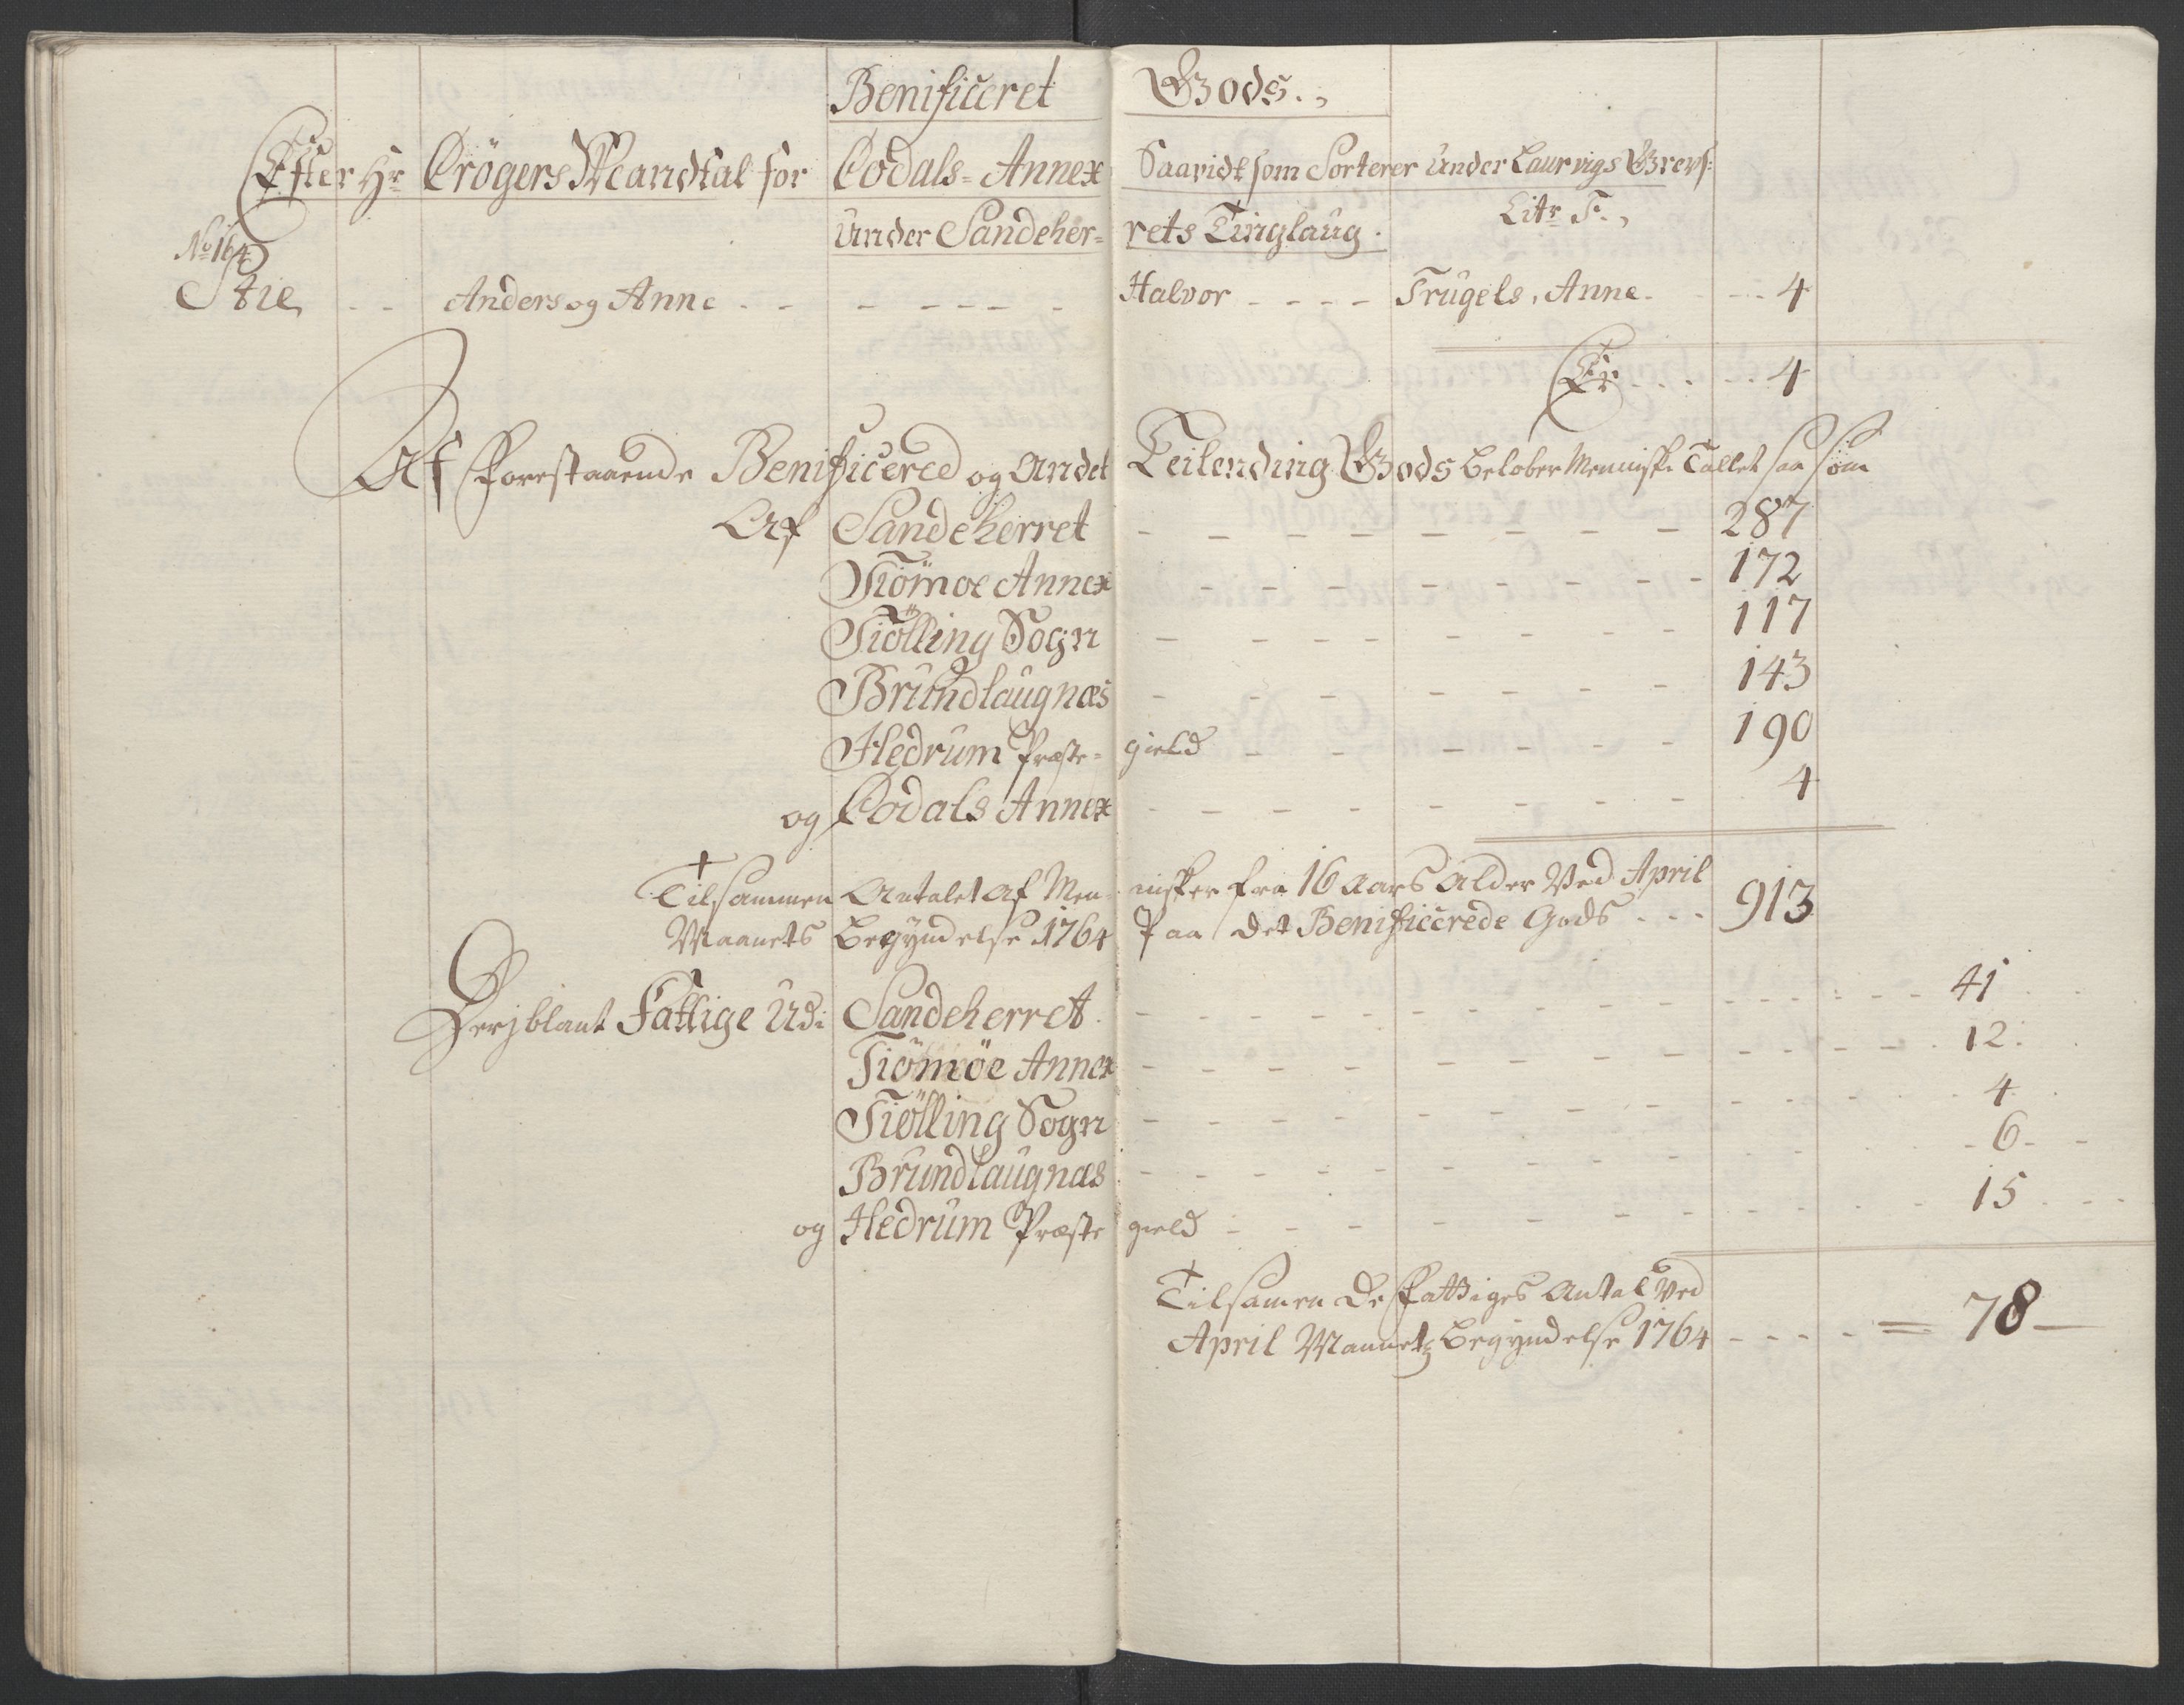 Benificeret Gods.,
Efter Hr Crögers Mandtal for Codals-Annex Saavidt som Sorterer Under Laurvigs Grevs:
Under Sandeher= rets Tinglaug. Litr F.,
No 164
Stie - - Anders og Anne - - - - - - - Halvor - - - - Trugels, Anne - - - 4
Er - - - - - 4
Af Forestaaende Benificered og Andet Leilending Gods beløber Menniske Tallet saa som
Af Sandeherret - - - - - - - - 287
Tiömöe Annex - - - - - - - - 172
Tiölling Sogn - - - - - - - - 117
Brundlaugnæs - - - - - - - 143
Hedrum Præste= gield - - - - - - 190
og Codals Annex - - - - - - - - 4
Tilsammen Antalet Af Men- nisker fra 16 Aars Alder Ved April
Maanets Begyndelse 1764 Paa det Benificerede Gods - - - 913
Derjblant Fattige Udi Sandeherret - - - - - - - - - - - - - 41
Tiömöe Annex - - - - - - - - - - - - 12
Tiölling Sogn - - - - - - - - - - - - 4
Brundlaugnæs - - - - - - - - - - - - 6 - -
og Hedrum Præste gield - - - - - - - - - - - 15 - - -
Tilsamen De Fattiges Antal Ved
April Maanetz Begyndelse 1764 - - - - = 78 -